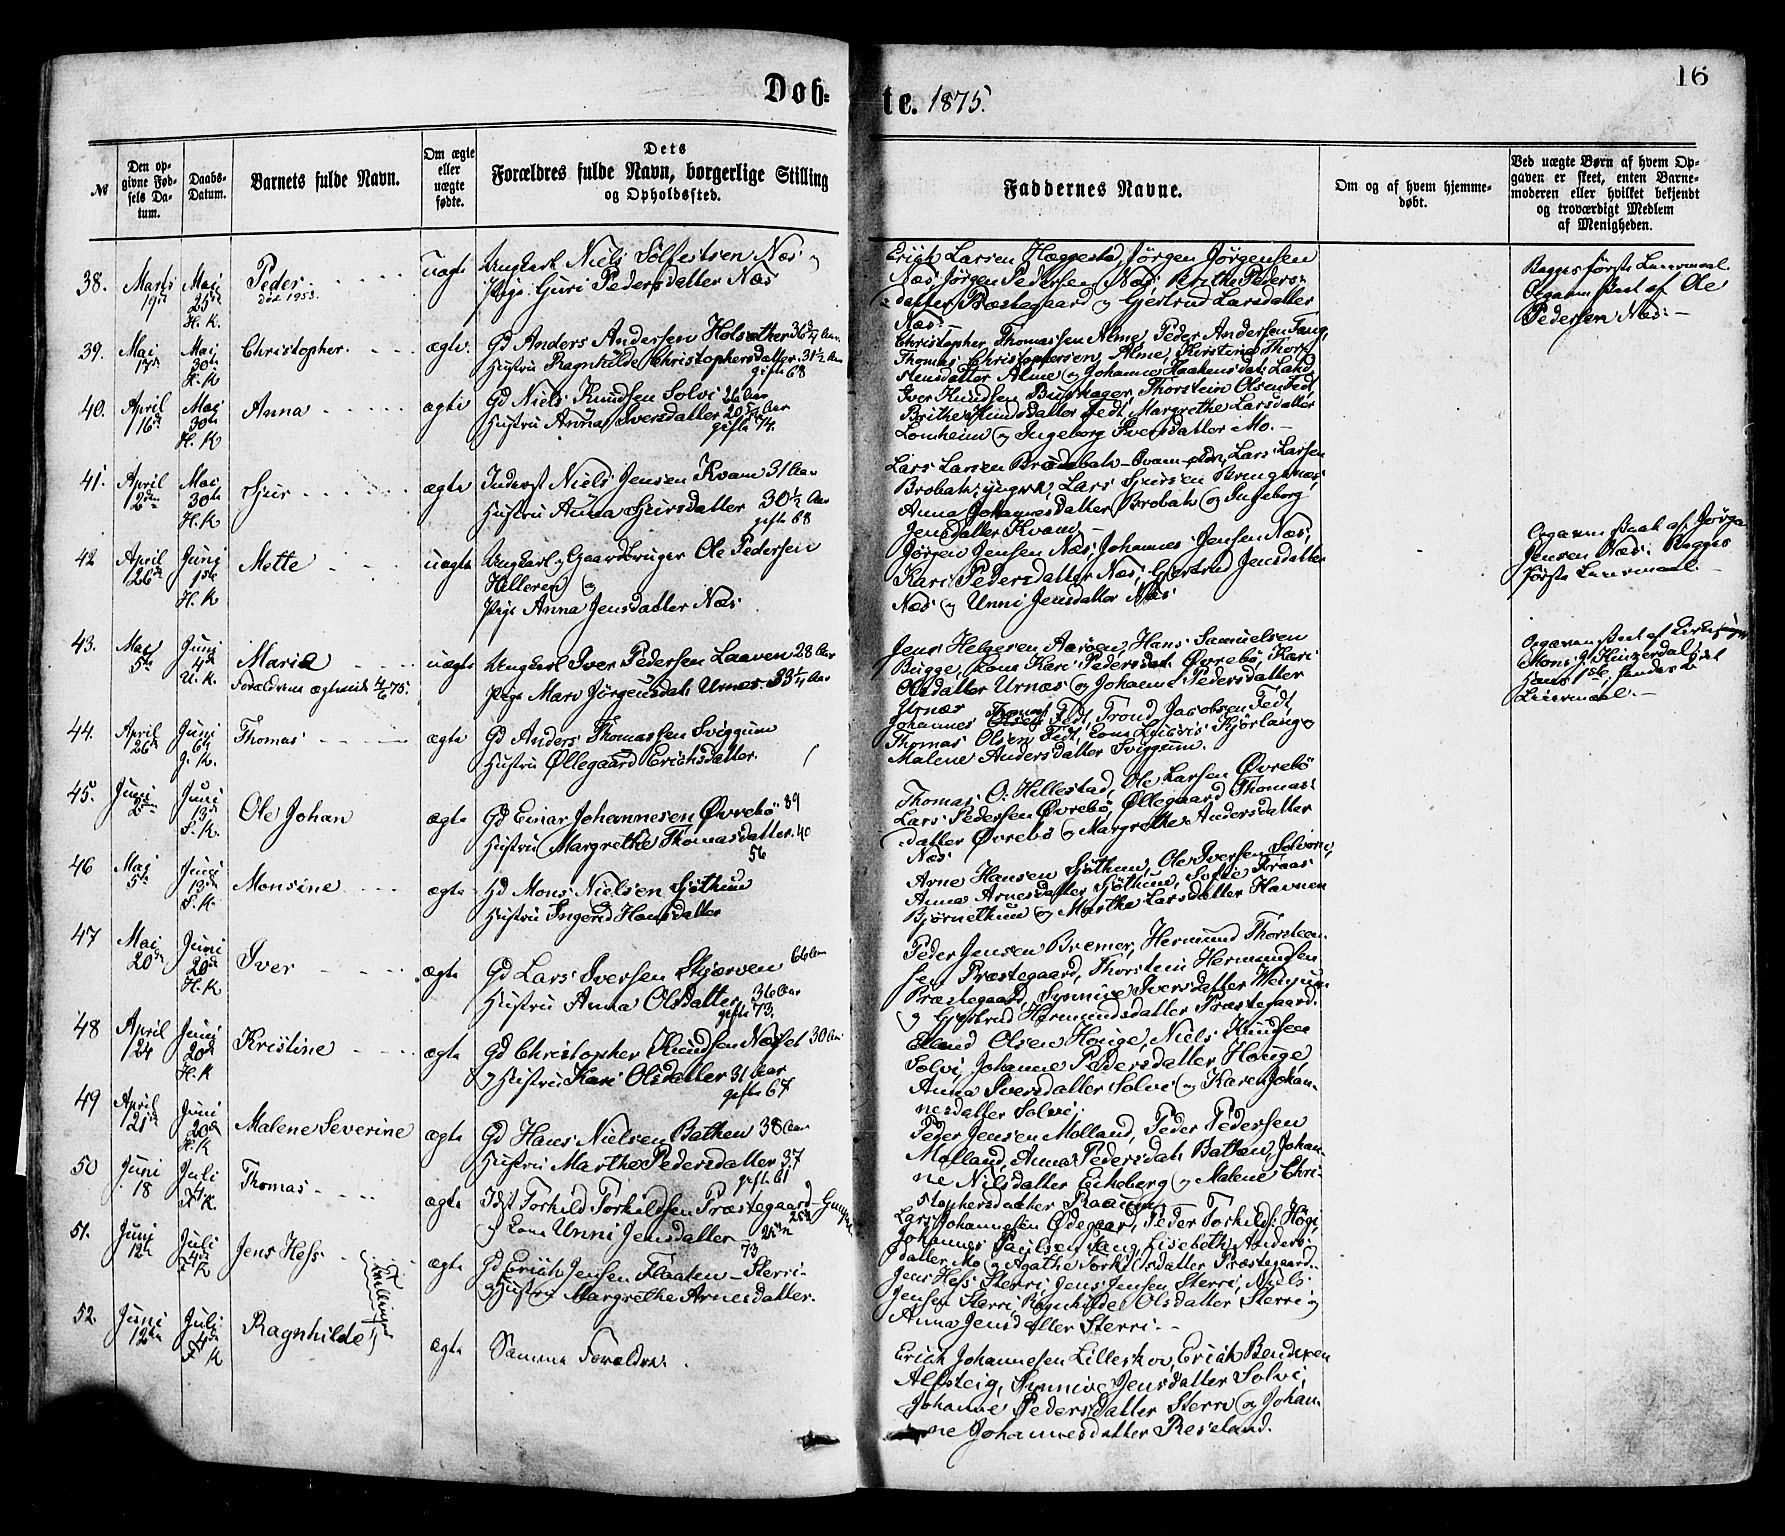 16
Døb-
te. 1875.
№
Den op-
givne Fød-
sels Da-
tum.
Daabs-
Datum.
Barnets fulde Navn.
Om ægte
eller
uægte
fødte.
Dets
Forældres fulde Navn, borgerlige Stilling
og Opholdssted.
Faddernes Navne.
Om og af hvem hjemme-
døbt.
Ved uægte Børn af hvem Op-
gaven er skeet, enten Barne-
moderen eller hvilket bekjendt
og troværdigt Medlem
af Menigheden.
38.
Marts
19de
Mai
25de
H. K.
Peder
død 1953.
uægte
Ungkarl Niels Sølfestsen Næs og
Pige Guri Pedersdatter Næs
Erich Larsen Hæggestad, Jørgen Jørgensen
Næs, Jørgen Pedersen Næs, Brithe Peders-
datter Præstegaard og Gjertrud Larsdatter
Næs.
Begges første Leiermaal
Opgaven skeet af Ole
Pedersen Næs.
39.
Mai
Mai
30te
H. K
Christopher.
ægte.
Gd Anders Andersen Holsæther 36 Aar
Hustru Ragnhilde Christophersdatter 31½ Aar
gift 68
Christopher Thomassen Alme, Peder Andersen Tang,
Thomas Christophersen Alme, Kirstine Thor-
stensdatter Alme og Johanne Haakensdat. Land
40.
April
16de
Mai
30te
H. K
Anna
ægte
Gd Niels Knudsen Solvi 26 Aar
Hustru Anna Iversdatter 20 Aar
gift 74.
Iver Knudsen Buskager, Thorstein Olsen Fedt,
Brithe Knudsdatter Fedt, Margrethe Larsdatter
Lomheim og Ingeborg Iversdatter Mo.
41.
April
2den
Mai
30te
H. K
Sjur
ægte
Inderst Niels Jensen Kvam 31 Aar
Hustru Anna Sjursdatter 30½ Aar
gift 68
Lars Larsen Brobak Kvam ældre, Lars Larsen
Brobak, yngre, Lars Sjursen Bringenæs,
Anna Johannesdatter Brobak og Ingeborg
Jensdatter Kvam
42
April
26de
Juni
1ste
H. K
Mette
uægte
Ungkarl og Gaardbruger Ole Pedersen
Hilleren og
Pige Anna Jensdatter Næs
Jørgen Jensen Næs, Johannes Jensen Næs,
Kari Pedersdatter Næs, Gjertrud Jensdatter
Næs og Unni Jensdatter Næs
Opgaven skeet af Jørgen
Jensen Næs. Begges
første Leiermaal.
43.
Mai
5te
Juni
4de
U. K.
Maria
Forældrene ægteviede 4/6 75.
uægte
Ungkarl Iver Pedersen Laaven 28 Aar
Pige Mari Jørgensdat. Urnæs 33¼ Aar
Jens Helgesen Aarøen, Hans Samuelsen
Bugge, Kone Kari Pedersdat. Øvrebø, Kari
Olsdatter Urnæs og Johanne Pedersdatter
Urnæs
Opgaven skeet af Kirkesanger
Mons J. Kinserdal;
Hans 1ste, hendes 2det
Leiermaal.
44.
April
26de
Juni
6te
G. K.
Thomas
ægte
Gd Anders Thomassen Sviggum
Hustru Øllegaard Erichsdatter.
Johannes Thomas. Fedt, Trond Jacobsen Fedt,
Thomas Olsen Fedt, Kone Lucris Kjørlaug og
Malene Andersdatter Sviggum.
45.
Juni
2den
Juni
13de
S. K.
Ole Johan
ægte
Gd Einar Johannesen Øvrebø 39
Hustru Margrethe Thomasdatter 40
56
Thomas O. Hillestad, Ole Larsen Øvrebø
Lars Pedersen Øvrebø, Øllegaard Thomas-
datter Øvrebø og Margrethe Andersdatter
Næs
46
Mai
5te
Juni
13de
S. K
Monsine
ægte
Gd Mons Nielsen Sjøthun
Hustru Ingerid Hansdatter
Arne Hansen Sjøthun, Ole Iversen Solvorn,
Anna Arnesdatter Sjøthun, Sofie Fraas
Bjørnethun og Marthe Larsdatter Havnen
47
Mai
20de
Juni
20de
H. K
Iver
ægte
Gd Lars Iversen Skjærven 66 Aar
Hustru Anna Olsdatter 36 Aar
gift 73.
Peder Jensen Bremer, Hermund Thorsteen-
sen Præstegaard, Thorstein Hermundsen
Præstegaard, Synnive Iversdatter
og Gjertrud Hermundsdatter Præstegaard.
48
April
24
Juni
20de
H. K
Kristine
ægte
Gd Christopher Knudsen Næset 30 Aar
og Hustru Kari Olsdatter 31 Aar
gift 67
Elland Olsen Houge, Niels Knudsen
Solvi, Johanne Pedersdatter Houge
Anna Iversdatter Solvi og Karen Johan-
nesdatter Solvi.
49
April
21de
Juni
20de
H. K
Malene Severine
ægte
Gd Hans Nielsen Bathen 38 Aar
Hustru Marthe Pedersdatter 37
gift 61
Peder Jensen Molland, Peder Pedersen
Molland, Anna Pedersdat. Bathen, Johan-
ne Nilsdatter Eikeberg og Malene Chri-
stophersdatter Raaum
50
Juni
18
Juli
4
F. K.
Thomas
ægte
Idst Torkild Torkildsen Præstegaard
og Kone Unni Jensdatter
73
Lars Johannesen Ødegaar, Peder Torkilds. Høgi
Johannes Paulsen Tang, Lisebeth Anders-
datter Mo og Agathe Torkildsdatter Præstegaard.
51.
Juni
12te
Juli
4de
F. K
Jens Hess
Tvillinger
ægte
Gd Erich Jensen Flaaten Sterri
Hustru Margrethe Arnesdatter.
Jens Hess Sterri, Jens Jensen Sterri, Niels
Jensen Sterri, Ragnhilde Olsdatter Sterri og
Anna Jensdatter Sterri.
52.
Juni
12te
Juli
4de
F. K
Ragnhilde
ægte
Samme Forældre.
Erich Johannesen Lilleskov, Erich Bendixen
Alfsteig, Synnive Jensdatter Solvi,
Johanne Pedersdatter Sterri og Johan-
ne Johannesdatter Reseland.